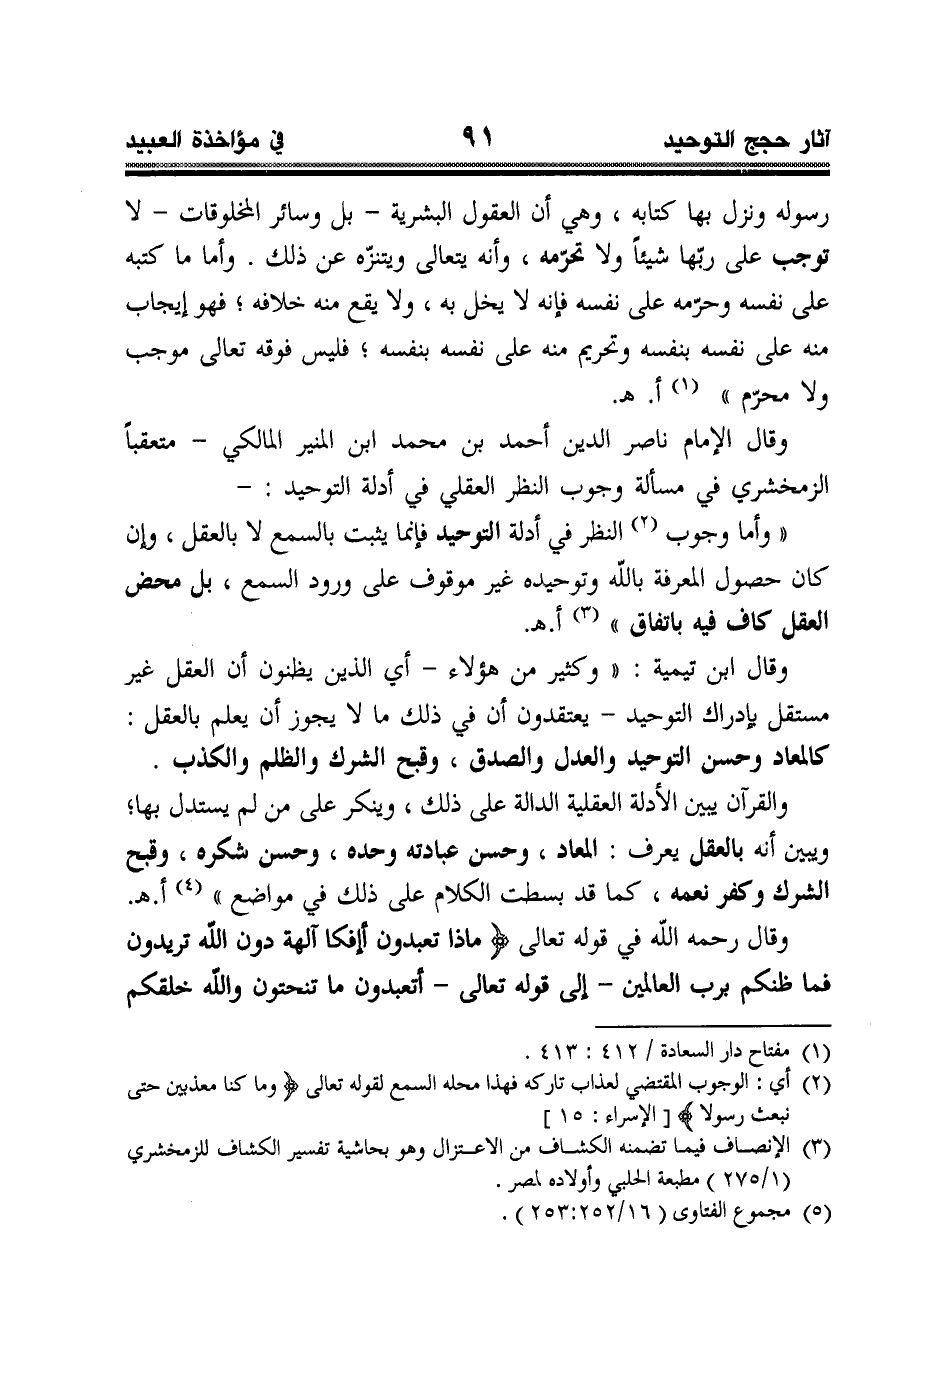 آثار حجج التوحيد ٩١ في مؤاخذة العبيد
رسوله ونزل بها كتابه ، وهي أن العقول البشرية – بل وسائر المخلوقات – لا
توجب على ربّها شيئاً ولا تحرّمه ، وأنه يتعالى ويتنزّه عن ذلك . وأما ما كتبه
على نفسه وحرّمه على نفسه فإنه لا يخل به ، ولا يقع منه خلافه ؛ فهو إيجاب
منه على نفسه بنفسه وتحريم منه على نفسه بنفسه ؛ فليس فوقه تعالى موجب
ولا محرّم » (١) أ. هـ.
وقال الإمام ناصر الدين أحمد بن محمد ابن المنير المالكي – متعقباً
الزمخشري في مسألة وجوب النظر العقلي في أدلة التوحيد : –
« وأما وجوب (٢) النظر في أدلة التوحيد فإنما يثبت بالسمع لا بالعقل ، وإن
كان حصول المعرفة بالله وتوحيده غير موقوف على ورود السمع ، بل محض
العقل كاف فيه باتفاق » (٣) أ.هـ.
وقال ابن تيمية : « وكثير من هؤلاء – أي الذين يظنون أن العقل غير
مستقل بإدراك التوحيد – يعتقدون أن في ذلك ما لا يجوز أن يعلم بالعقل :
كالمعاد وحسن التوحيد والعدل والصدق ، وقبح الشرك والظلم والكذب .
والقرآن يبين الأدلة العقلية الدالة على ذلك ، وينكر على من لم يستدل بها؛
ويبين أنه بالعقل يعرف : المعاد ، وحسن عبادته وحده ، وحسن شكره ، وقبح
الشرك وكفر نعمه ، كما قد بسطت الكلام على ذلك في مواضع » (٤) أ.هـ.
وقال رحمه الله في قوله تعالى ﴿ ماذا تعبدون أإفكا آلهة دون الله تريدون
فما ظنكم برب العالمين – إلى قوله تعالى – أتعبدون ما تنحتون والله خلقكم
(١) مفتاح دار السعادة / ٤١٢ : ٤١٣ .
(٢) أي : الوجوب المقتضي لعذاب تاركه فهذا محله السمع لقوله تعالى ﴿ وما كنا معذبين حتى
نبعث رسولا ﴾ [ الإسراء : ١٥ ]
(٣) الإنصاف فيما تضمنه الكشاف من الاعتزال وهو بحاشية تفسير الكشاف للزمخشري
(٢٧٥/١ ) مطبعة الحلبي وأولاده لمصر .
(٥) مجموع الفتاوى ( ٢٥٣:٢٥٢/١٦ ) .